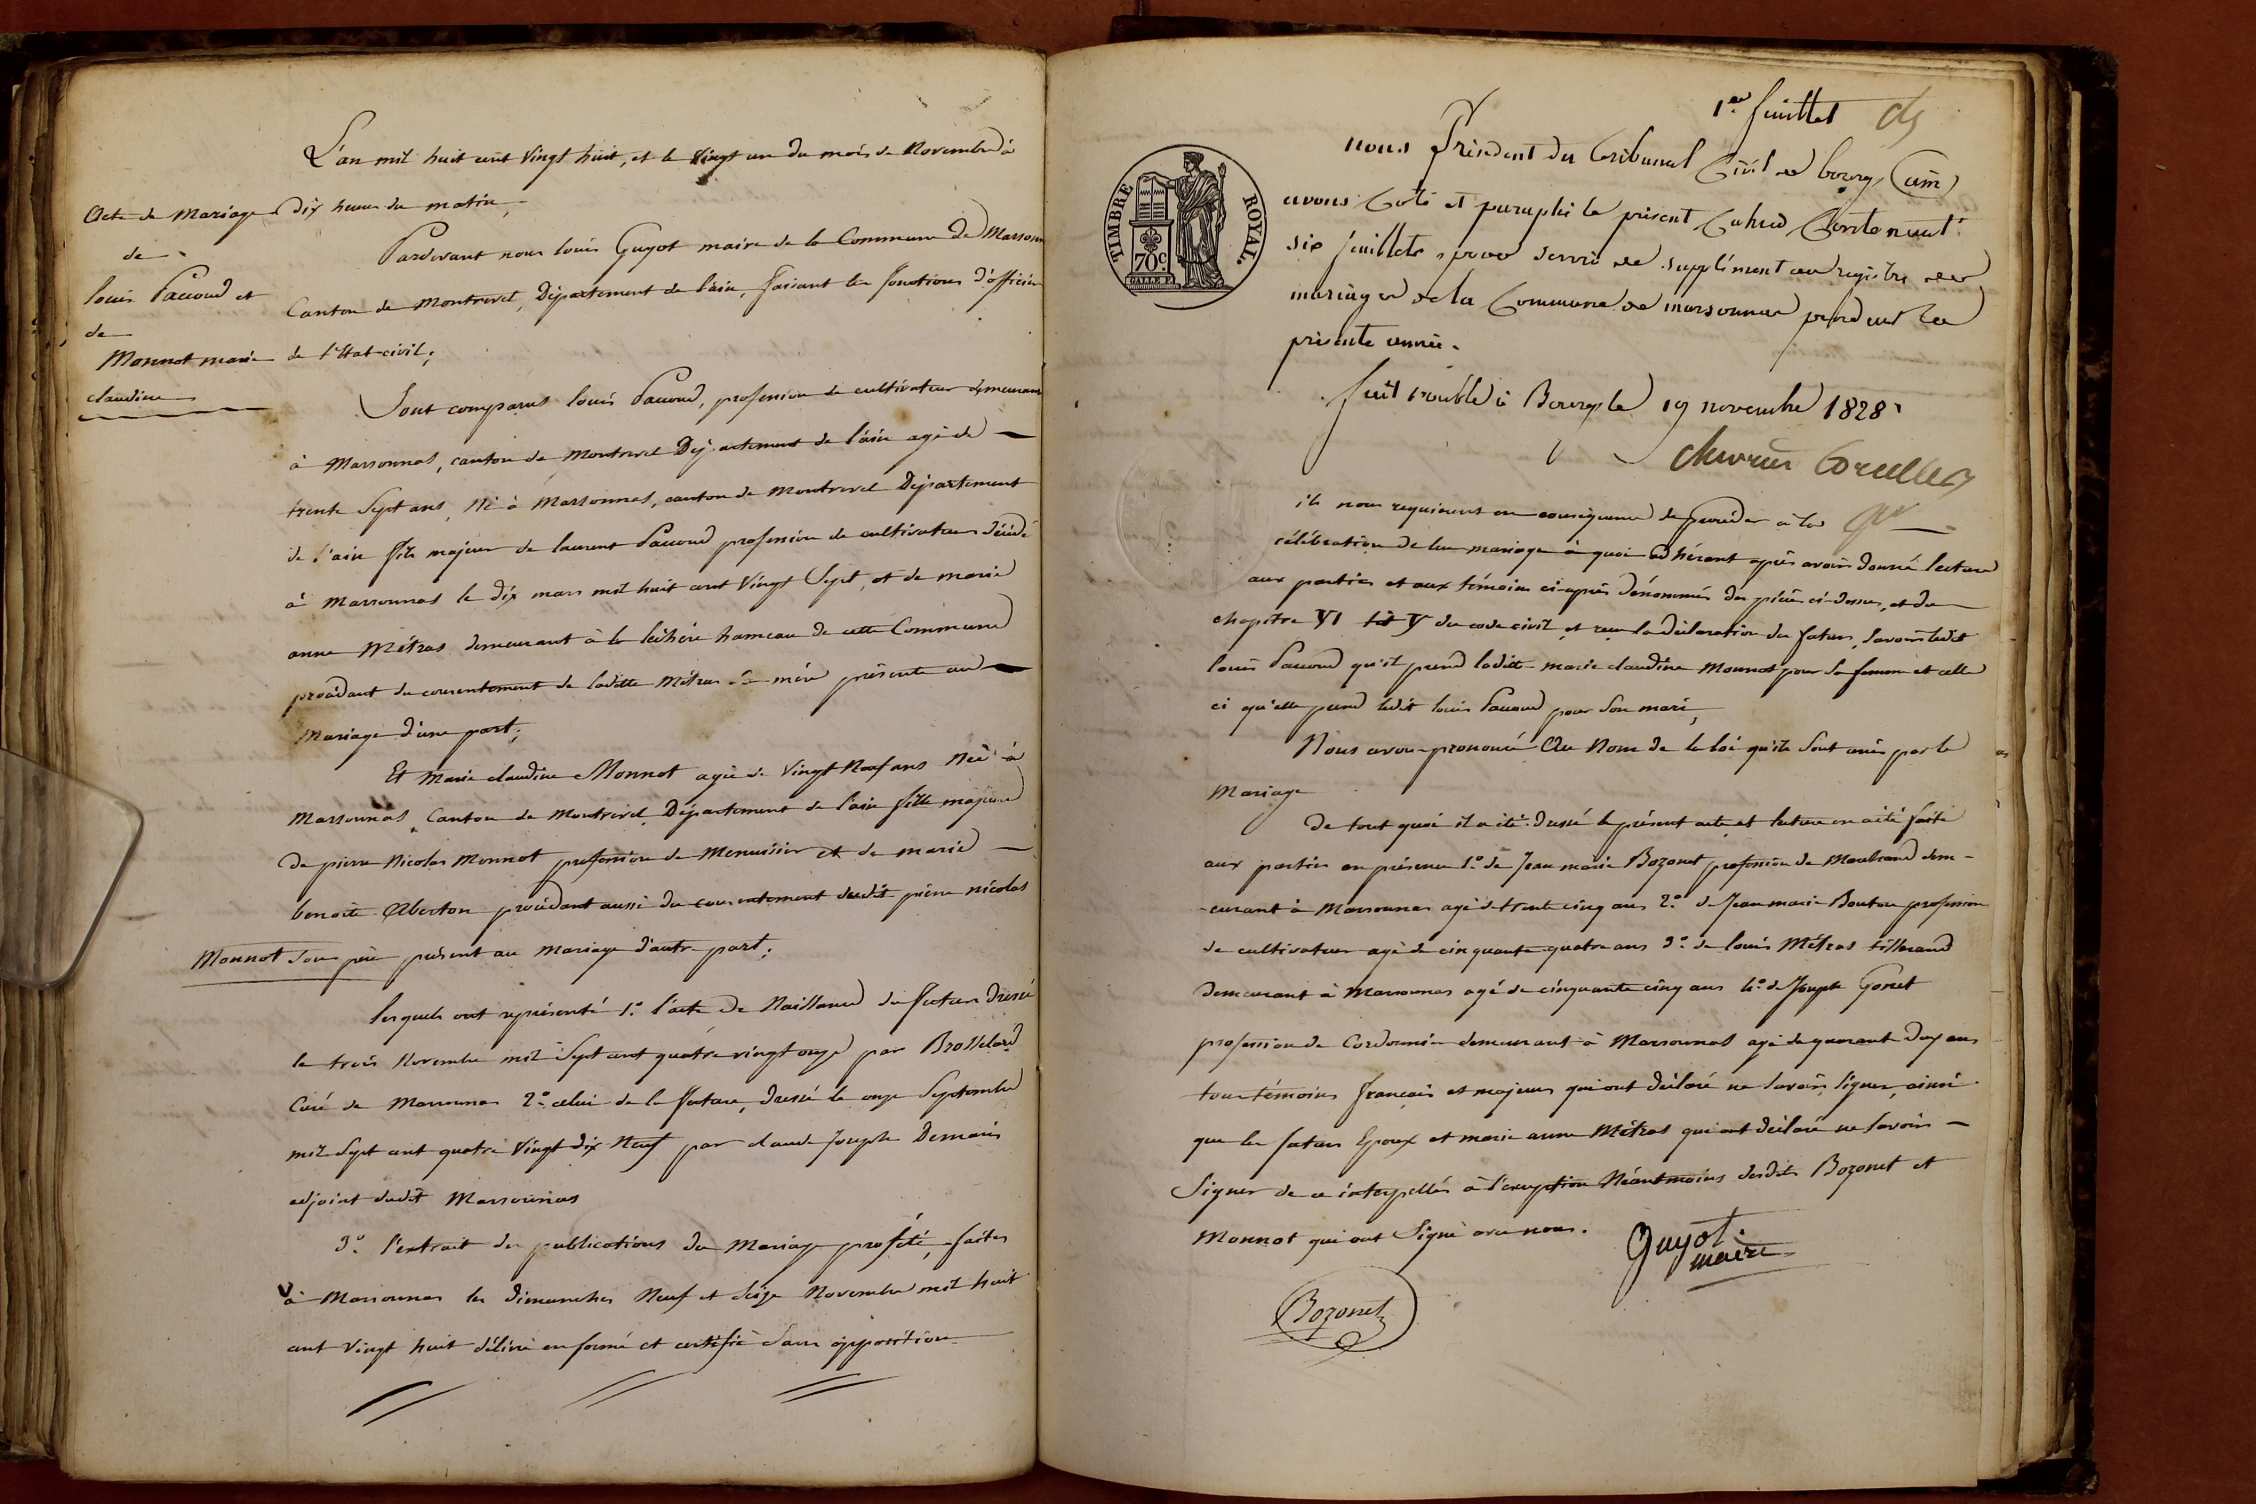 L'an mil huit cent vingt huit, et le vingt un du mois de Novembre à
dix heures du matin,
Acte de Mariage
de
louis Pacoud et
de
Monnot marie
claudine
Pardevant nous louis Guyot maire de la Commune de Marsonnas
Canton de Montrevel, Département de l'ain, faisant les fonctions d'officier
de l'Etat-civil;
Sont comparus louis Pacoud, profession de cultivateur demeurant
à Marsonnas, canton de Montrevel Département de l'ain agé de
trente sept ans, Né à Marsonnas, canton de Montrevel Département
de l'ain fils majeur de laurent Pacoud profession de cultivateur décédé
à Marsonnas le dix mars mil huit cent vingt sept, et de marie
anne Métras demeurant à la hameau de cette Commune
procédant du consentement de laditte Métras sa mère présente au
mariage d'une part;
Et Marie claudine Monnot agée de vingt Neuf ans Née à
Marsonnas Canton de Montrevel Département de l'ain fille majeure
de pierre Nicolas Monnot profession de Menuisier et de marie
benoite Aberton procédant aussi du consentement dudit pierre nicolas
Monnot son père présent au mariage d'autre part;
lesquels ont représenté 1.º l'acte de Naissance du futur dressé
le trois Novembre mil sept cent quatre vingt onze par Brosselard
Curé de Marsonnas 2.º celui de la future, dressé le onze Septembre
mil sept cent quatre vingt dix Neuf par claude Joseph Demaris
adjoint dudit Marsonnas
3.º l'extrait des publications du Mariage projeté, faites
à Marsonnas les dimanches Neuf et seize Novembre mil huit
cent vingt huit délivré en forme et certifié sans opposition
1er feuillet
TIMBRE ROYAL.
70 c
nous Président du tribunal Civil de bourg (ain)
avons Coté et paraphé le présent Cahier Contenant
six feuillets pour servir de supplément au registre des
mariages de la Commune de marsonnas pendant la
présente année.
fait double à Bourg le 19 novembre 1828
Chevrier Corcelles
ils nous requierent en conséquence de procéder à la
célébration de leur mariage à quoi adhérant après avoir donné lecture
aux parties et aux témoins ci-après dénommés des pièces ci-dessus, et du
chapitre VI tit V du code civil et reçu la déclaration des futurs, savoir ledit
louis Pacoud qu'il prend laditte marie claudine Monnot pour sa femme et celle
ci qu'elle prend ledit louis Pacoud pour son mari,
Nous avons prononcé Au Nom de la loi qu'ils sont unis par le
Mariage
De tout quoi il a été dressé le présent acte et lecture en a été faite
aux parties en présence 1.º de Jean marie Bozonet profession de Marchand dem-
-eurant à Marsonnas agé de trente cinq ans 2.º de Jean marie Bouton profession
de cultivateur agé de cinquante quatre ans 3.º de louis Métras tisserand
demeurant à Marsonnas agé de cinquante cinq ans 4.º de Joseph Gonet
profession de Cordonnier demeurant à Marsonnas agé de quarante deux ans
tous témoins français et majeurs qui ont déclaré ne savoir signer, ainsi
que les futurs Epoux et marie anne Métras qui ont déclaré ne savoir
signer de ce interpellés à l'exception Néantmoins desdits Bozonet et
Monnot qui ont signé avec nous.
Guyot
maire
Bozonet